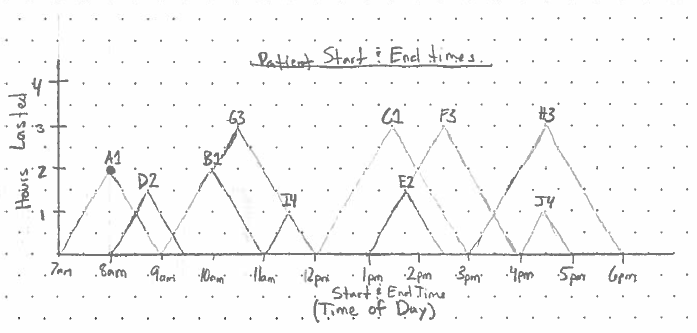 Patient Start & End times
Hours Lasted
4
3
2
1
A1
D2
B1
G3
I4
C1
E2
F3
H3
J4
7am 8am 9am 10am 11am 12pm 1pm 2pm 3pm 4pm 5pm 6pm
Start & End Time
(Time of Day)